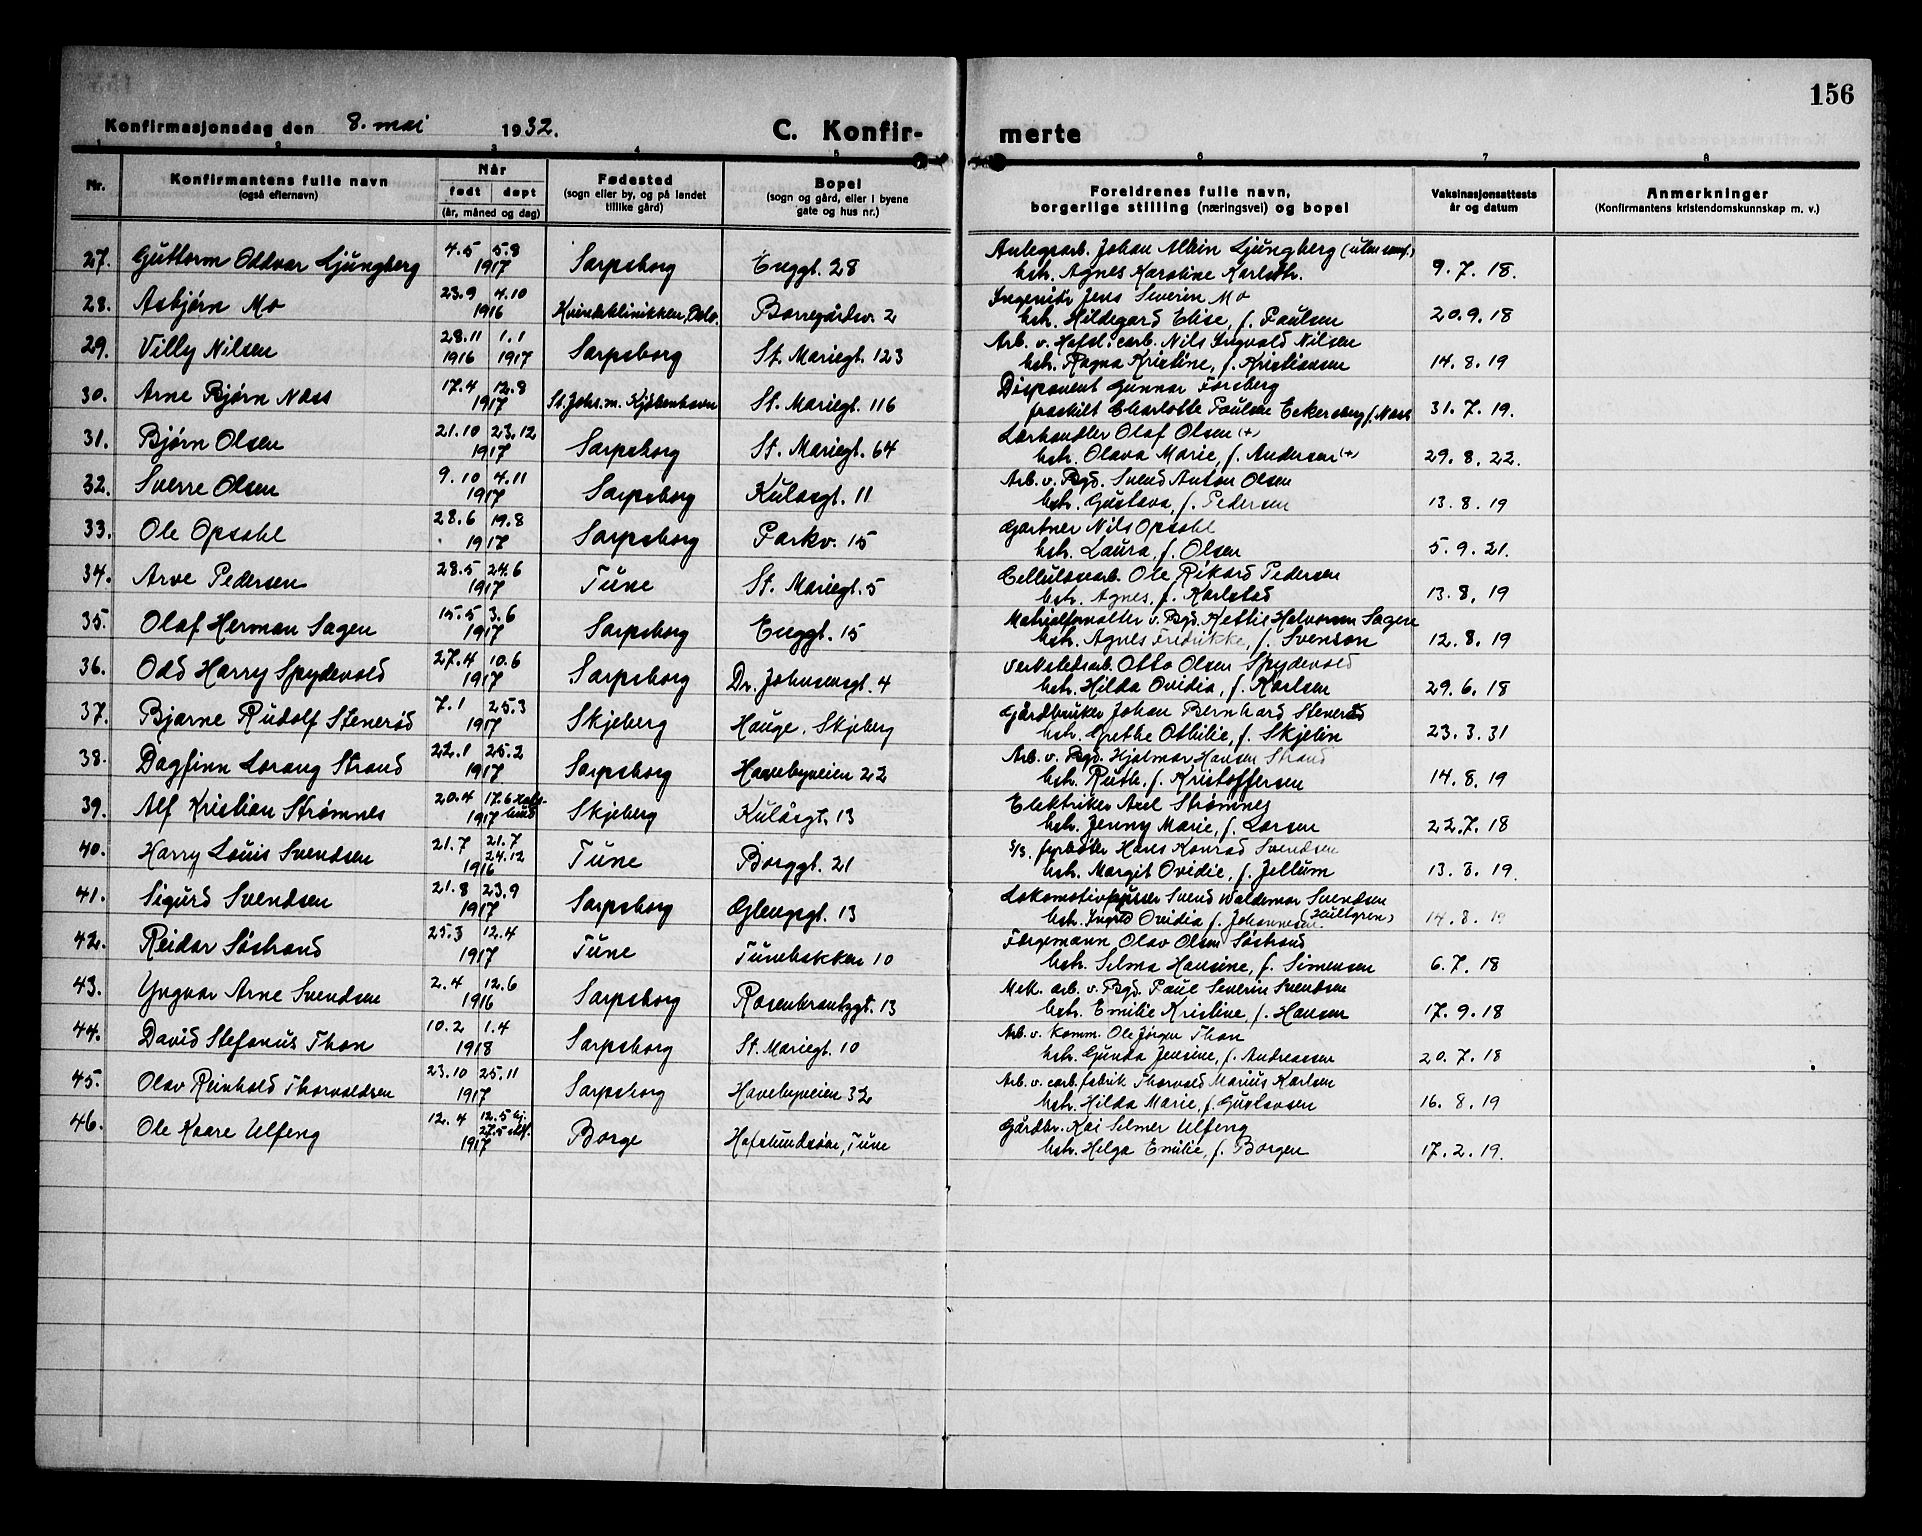 156
Konfirmasjonsdag den 8. mai 1932. C. Konfir- merte
1 2 3 4 5 6 7 8
Nr. Konfirmantens fulle navn (også efternavn) Når født døpt (år, måned og dag) Fødested (sogn eller by, og på landet tillike gård) Bopel (sogn og gård, eller i byene gate og hus nr.) Foreldrenes fulle navn, borgerlige stilling (næringsvei) og bopel Vaksinasjonsattests år og datum Anmerkninger (Konfirmantens kristendomskunnskap m. v.)
27. Guttorm Oddvar Ljungberg 4.5 5.8 1917 Sarpsborg Enggt. 28 Johan Albin Ljungberg
hstr. Agnes Karoline 9.7.18.
28. Asbjørn Mo 23.9 4.10 1916 Kvindeklinikken, Oslo. Borregårdsv. 2 Ingeniør Jens Severin Mo
hstr. Hildegard Elise, f. Paulsen 20.9.18
29. Villy Nilsen 28.11 1916 1.1 1917 Sarpsborg St. Mariegt. 123 Arb. v. Hafsl. carb. Nils Ingvald Nilsen
hstr. Ragna Kristine, f. Kristiansen 14.8.19
30. Arne Bjørn Næss 17.4 12.8 1917 St. Johs. m. Kjøbenhavn St. Mariegt. 116 Disponent Gunnar Forsberg
fraskilt Charlotte Pauline Eckersberg f. Næss 31.7.19.
31. Bjørn Olsen 21.10 23.12 1917 Sarpsborg St. Mariegt. 64 Lærhandler Olaf Olsen (+)
hstr. Olava Marie, f. Andersen (+) 29.8.22.
32. Sverre Olsen 9.10 4.11 1917 Sarpsborg Kulåsgt. 11 Arb. v. Bgd. Svend Anton Olsen
hstr. Gustava, f. Pedersen 13.8.19
33. Ole Opsahl 28.6 19.8 1917 Sarpsborg Parkv. 15 Gartner Nils Opsahl
hstr. Laura, f. Olsen 5.9.21.
34. Arve Pedersen 28.5 24.6 1917 Tune St. Mariegt. 5 Cellulosearb. Ole Rikard Pedersen
hstr. Agnes, f. Karlstad 13.8.19
35. Olaf Herman Sagen 15.5 3.6 1917 Sarpsborg Enggt. 15 Matrialforvalter v. Bgd. Kettil Halvorsen Sagen
hstr. Agnes Fredrikke, f. Svenson 12.8.19
36. Odd Harry Spydevold 27.4 10.6 1917 Sarpsborg Dr. Johnsensgt. 4 Verkstedsarb. Otto Olsen Spydevold
hstr. Hilda Ovidia, f. Karlsen 29.6.18
37. Bjarne Rudolf Stenerød 7.1 25.3 1917 Skjeberg Hauge, Skjeberg Gårdbruker Johan Bernhard Stenerød
hstr. Grethe Othilie, f. Skjelin 23.3.31
38. Dagfinn Lorang Strand 22.1 25.2 1917 Sarpsborg Havebyveien 22 Arb. v. Bgd. Hjalmar Hansen Strand
hstr. Ruth, f. Kristoffersen 14.8.19
39. Alf Kristian Strømnes 20.4 17.6 1917 Skjeberg Kulåsgt. 13 Elektriker Axel Strømnes
hstr. Jenny Marie, f. Larsen 22.7.18
40. Harry Louis Svendsen 21.7 21.7 24.12 1916 Tune Borggt. 21 fyrbøter Hans Konrad Svendsen
hstr. Margit Ovidie, f. Jellum 13.8.19.
41. Sigurd Svendsen 21.8 23.9 1917 Sarpsborg Glengsgt. 13 Lokomotivpusser Svend Waldemar Svendsen
hstr. Ingrid Ovidia f. Johannesen (Hullgren) 14.8.19
42. Reidar Søstrand 25.3 12.4 1917 Tune Tunebakken 10 Færgemann Olav Olsen Søstrand
hstr. Selma Hansine, f. Simensen 6.7.18
43. Yngvar Arne Svendsen 2.4 12.6 1916 Sarpsborg Rosenkrantzgt. 13 Mek. arb. v. Bgd. Paul Severin Svendsen
hstr. Emilie Kristine, f. Hansen 17.9.18
44. David Stefanus Thon 10.2 1.4 1918 Sarpsborg St. Mariegt. 10 Arb. v. Komm. Ole Jørgen Thon
hstr. Gunda Jensine, f. Andreassen 20.7.18
45. Olav Reinhold Thorvaldsen 23.10 25.11 1917 Sarpsborg Havebyveien 32 Arb. v. carb. fabrik Thorvald Marius Karlsen
hstr. Hilda Marie, f. Gustavsen 16.8.19
46. Ole Kaare Ulfeng 12.4 12.5 hj. 27.5 stdf. 1917 Borge Hafslundsøen, Tune Gårdbr. Kai Selmer Ulfeng
hstr. Helga Emilie, f. Borgen 17.2.19.